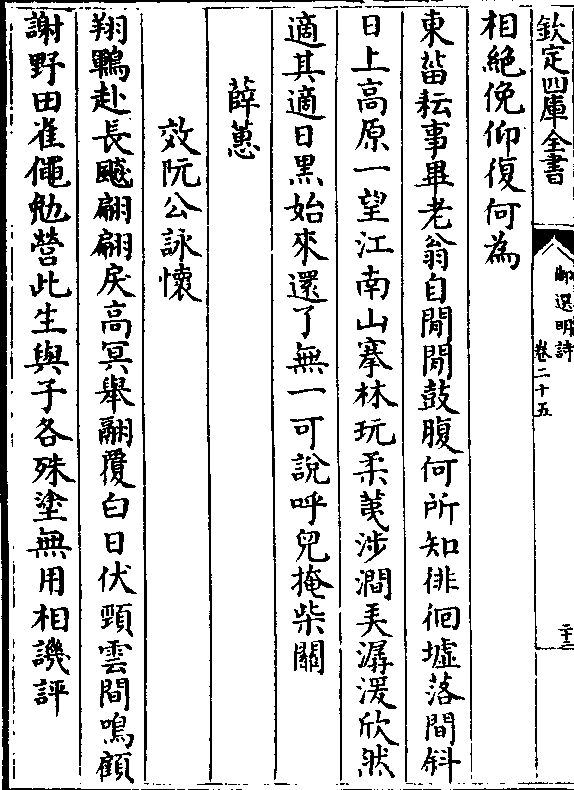 欽定四庫全書
御選明詩
卷二十五
相絶俛仰復何為
東菑耘事畢老翁自閒閒鼓腹何所知徘徊墟落間斜
日上高原一望江南山搴林玩柔荑涉澗弄潺湲欣然
適其適日黒始來還了無一可說呼兒掩柴關
薛蕙
效阮公詠懷
翔鸜赴長飈翩翩戾高冥舉翮覆白日伏頸雲間鳴顧
謝野田雀僶勉營此生與子各殊塗無用相譏評